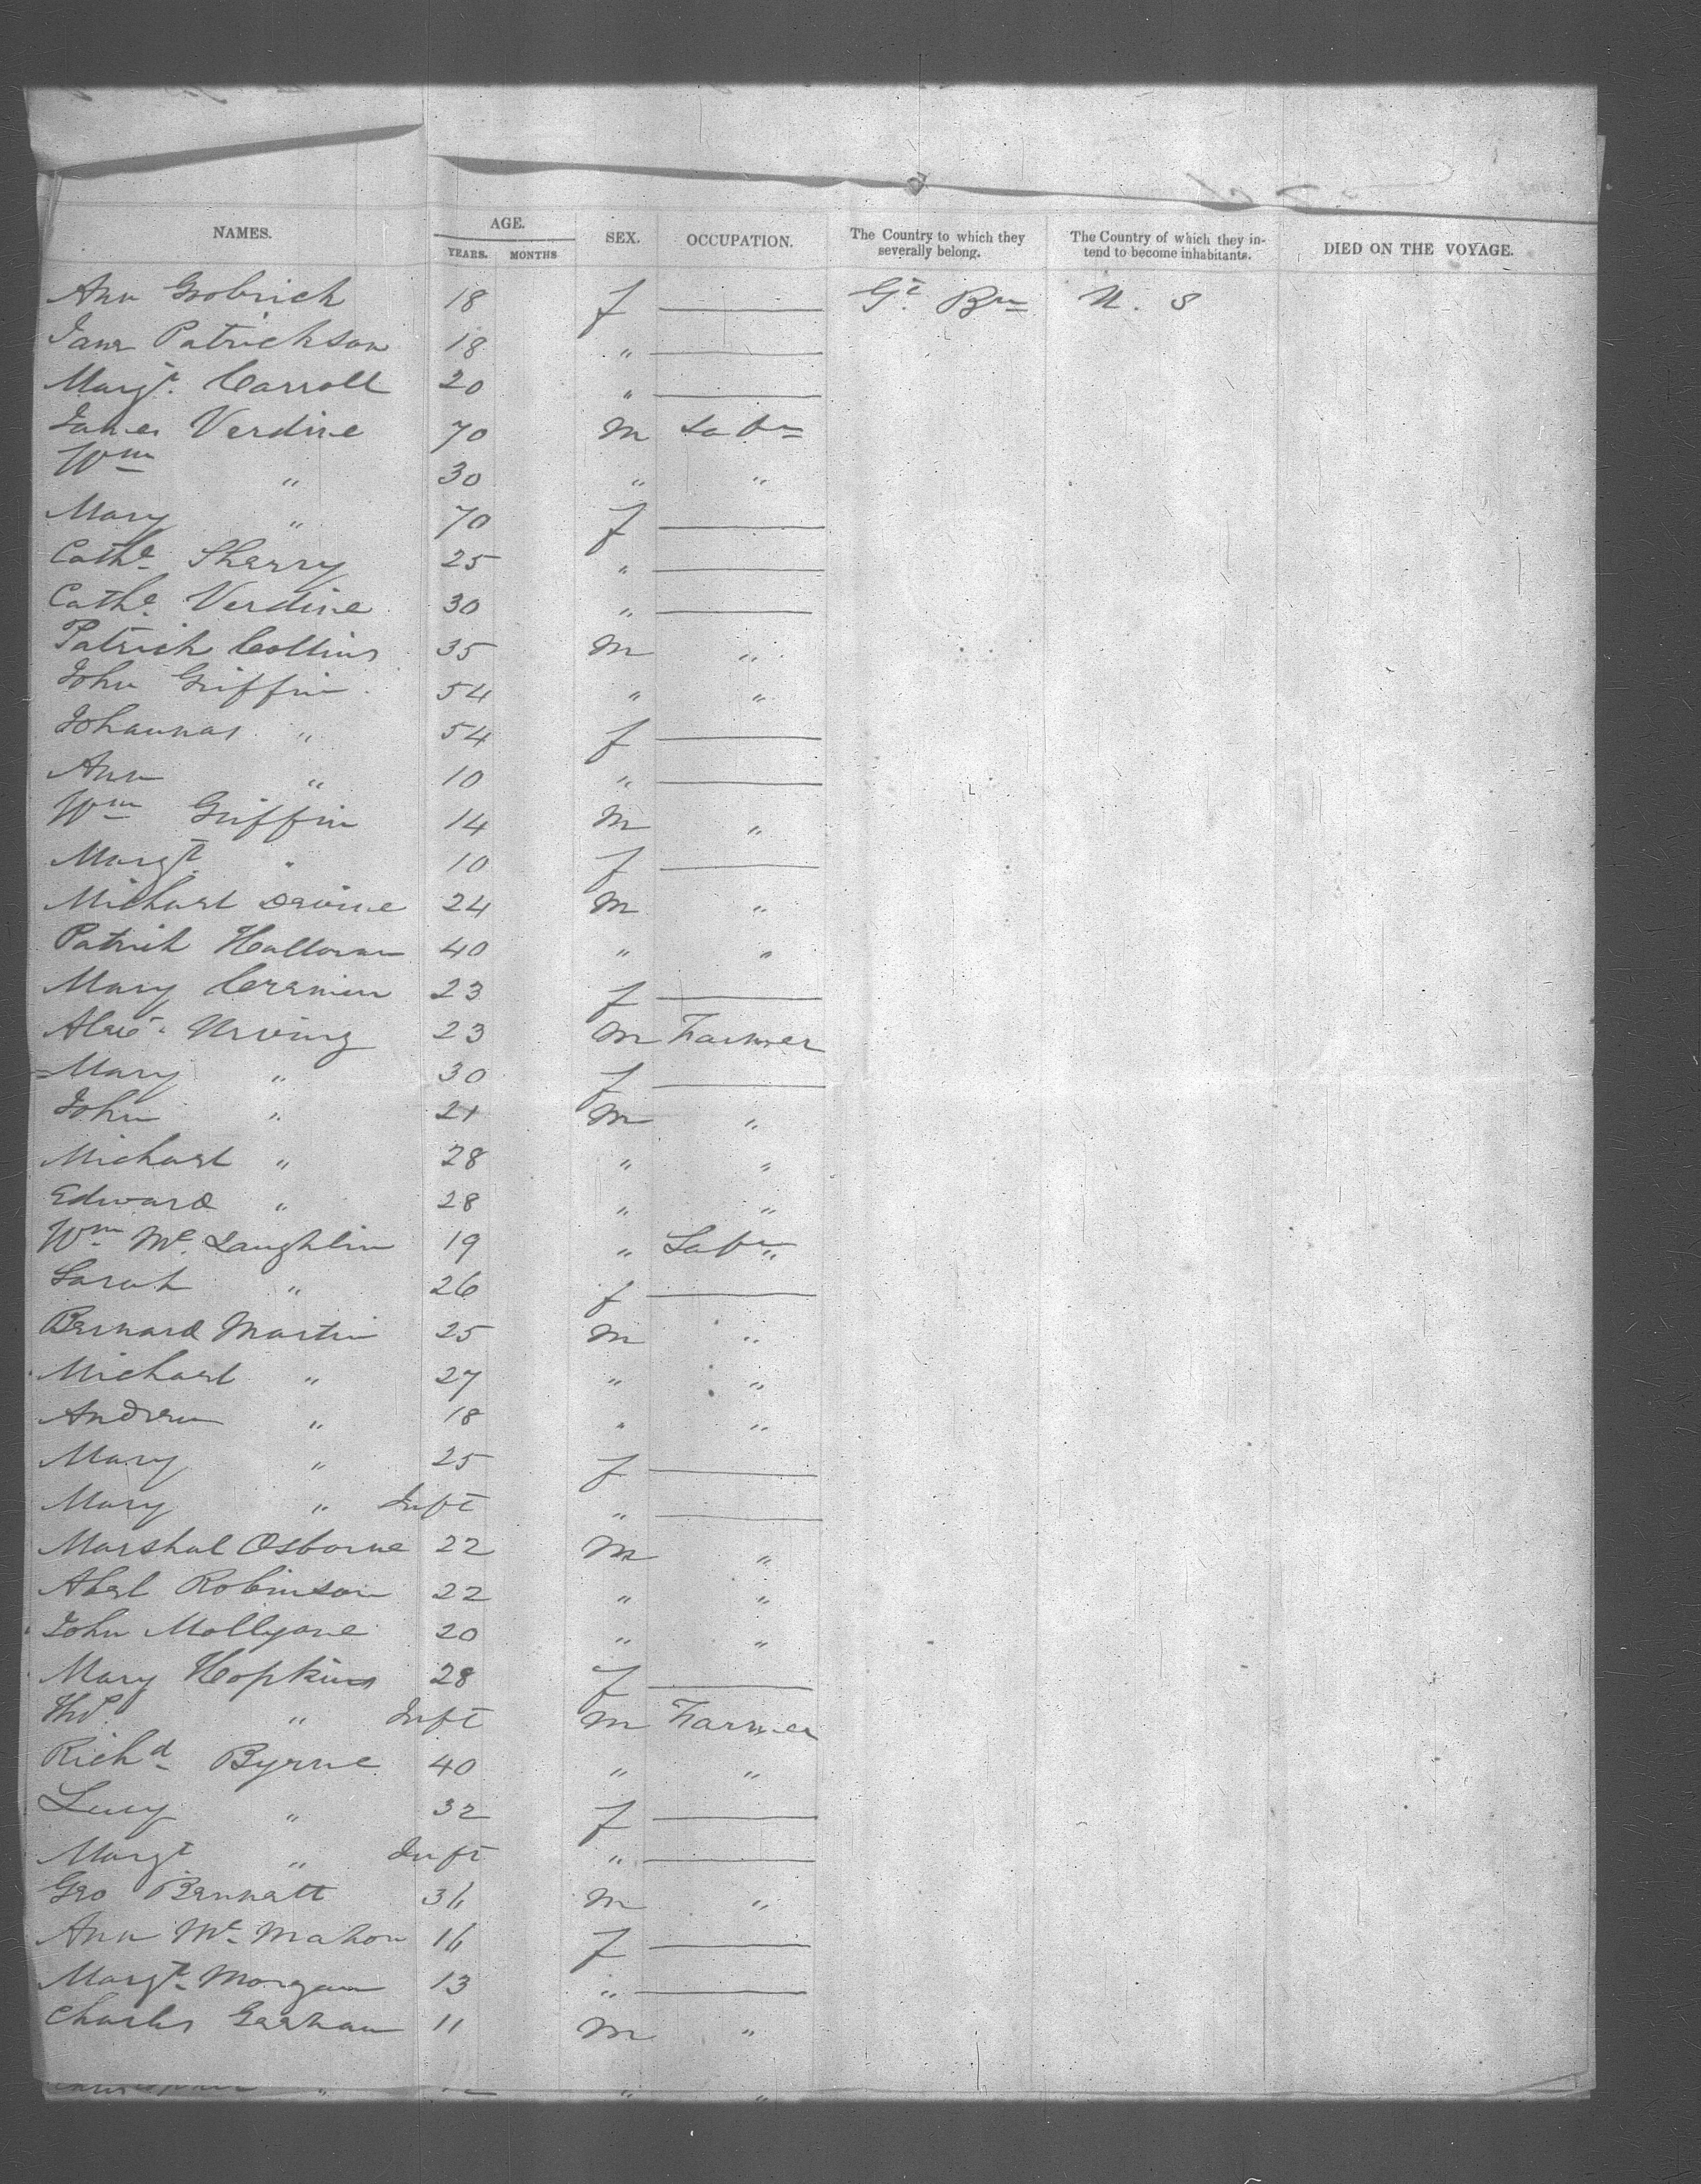 NAMES. AGE. SEX. OCCUPATION. The Country to which they severally belong. The Country of which they intend to become inhabitants. DIED ON THE VOYAGE.
YEARS. MONTHS
Ann Grobrich 18 f — Gt Brn U. S
Jane Patrickson 18 " —
Margt. Carroll 20 " —
James Verdine 70 M Labr
Wm " 30 " "
Mary " 70 f —
Cathe Sherry 25 " —
Cathe Verdine 30 " —
Patrick Collins 35 M "
John Griffin 54 " "
Johannas " 54 f —
Ann " 10 " —
Wm Griffin 14 M "
Margt " 10 f —
Michael Devine 24 M "
Patrick Halloran 40 " "
Mary Cremin 23 f —
Alexr. Urving 23 M Farmer
Mary " 30 f —
John " 21 M "
Michael " 28 " "
Edward " 28 " "
Wm Mc Laughlin 19 " Labr "
Sarah " 26 f —
Bernard Martin 25 M "
Michael " 27 " "
Andrew " 18 " "
Mary " 25 f —
Mary " Inft " —
Marshal Osborne 22 M "
Abel Robinson 22 " "
John Mollyane 20 " "
Mary Hopkins 28 f —
Thos " Inft M Farmer
Richd Byrne 40 " "
Lucy " 32 f —
Margt " Inft " —
Geo Bennett 36 M "
Ann Mc Mahon 16 f —
Margt Morgan 13 " —
Charles Gerhan 11 M "